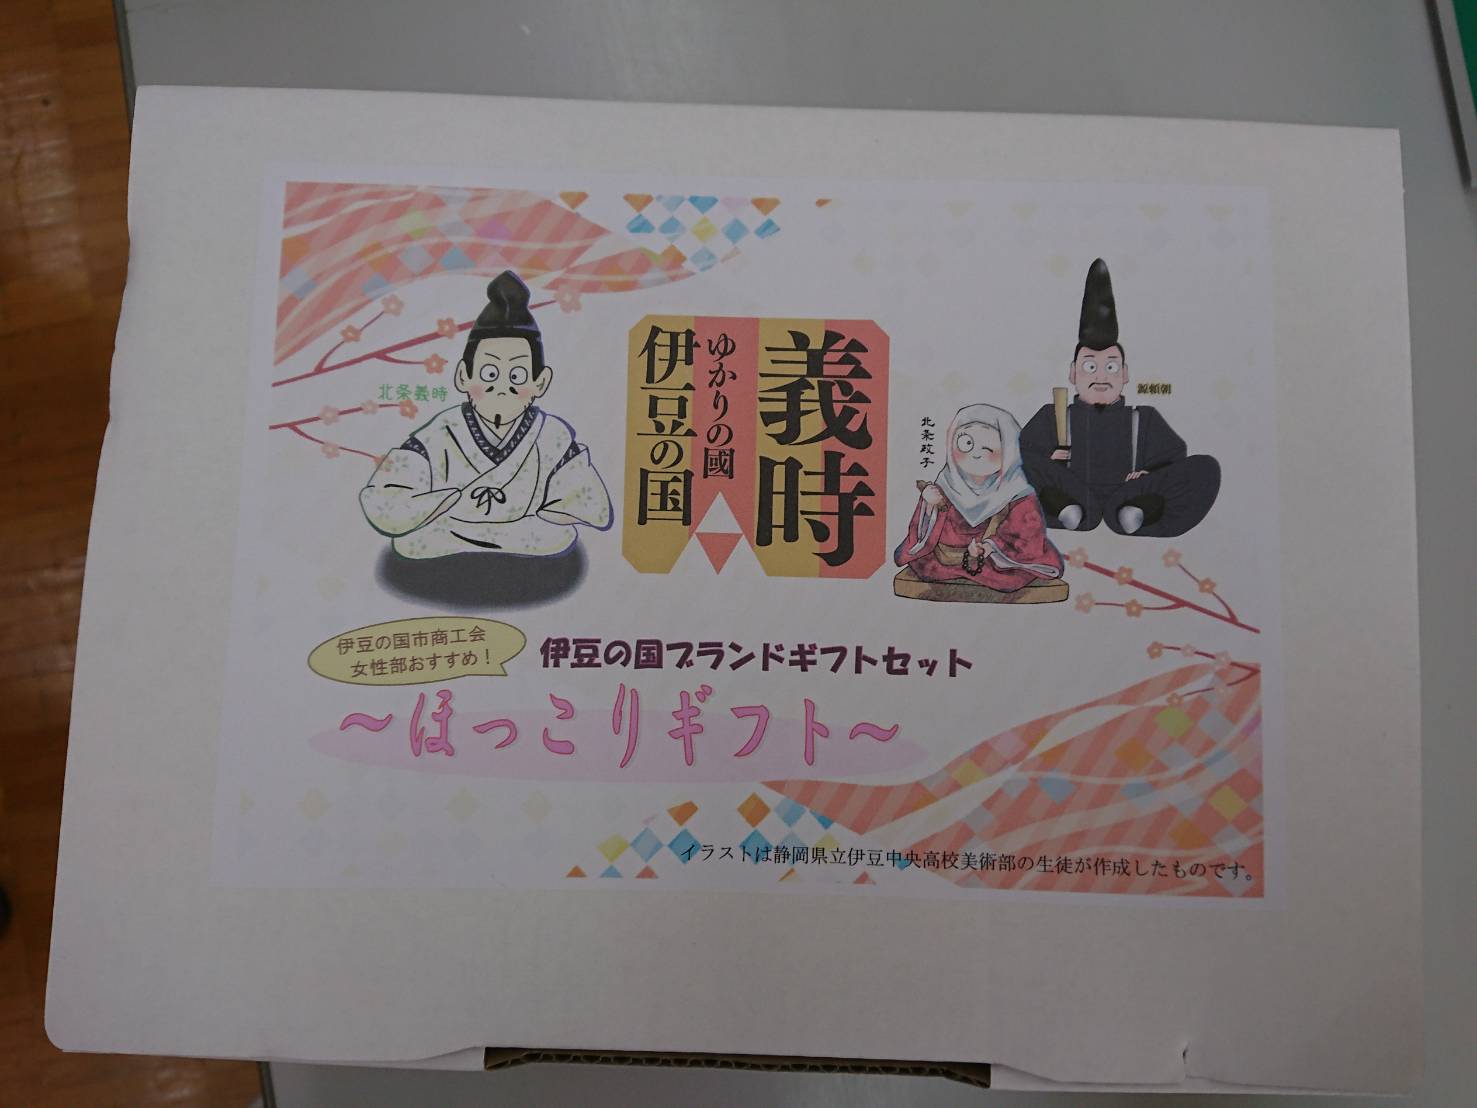 北条義時
義時
ゆかりの國
伊豆の国
北条政子
源頼朝
伊豆の国市商工会
女性部おすすめ！
伊豆の国ブランドギフトセット
～ほっこりギフト～
イラストは静岡県立伊豆中央高校美術部の生徒が作成したものです。